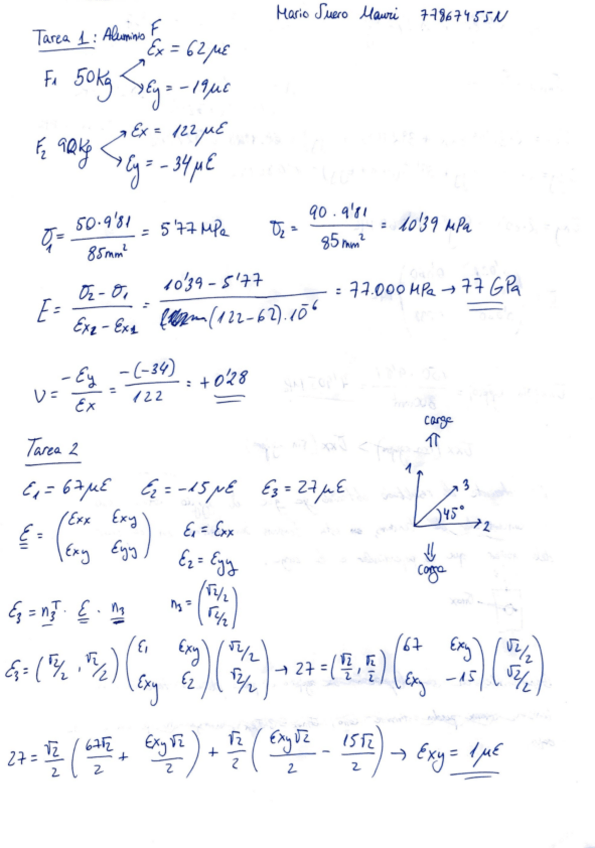 Mario Suero Mauri 77867455N
Tarea 1: Aluminio F
F1 50Kg Ex = 62με
Ey = -19με
F2 90kg Ex = 122με
Ey = -34με
σ1 = 50·9'81 / 85mm² = 5'77 MPa σ2 = 90·9'81 / 85mm² = 10'39 MPa
E = σ2 - σ1 / Ex2 - Ex1 = 10'39 - 5'77 / (122-62)·10^-6 = 77.000 MPa → 77 GPa
ν = -Ey / Ex = -(-34) / 122 = +0'28
Tarea 2
ε1 = 67με ε2 = -15με ε3 = 27με
carga
1
3
45°
2
carga
ε = (εxx εxy / εxy εyy) ε1 = εxx
ε2 = εyy
ε3 = n3^T · ε · n3 n3 = (√2/2 / √2/2)
ε3 = (√2/2, √2/2) (ε1 εxy / εxy ε2) (√2/2 / √2/2) → 27 = (√2/2, √2/2) (67 εxy / εxy -15) (√2/2 / √2/2)
27 = √2/2 (67√2/2 + εxy√2/2) + √2/2 (εxy√2/2 - 15√2/2) → εxy = 1με